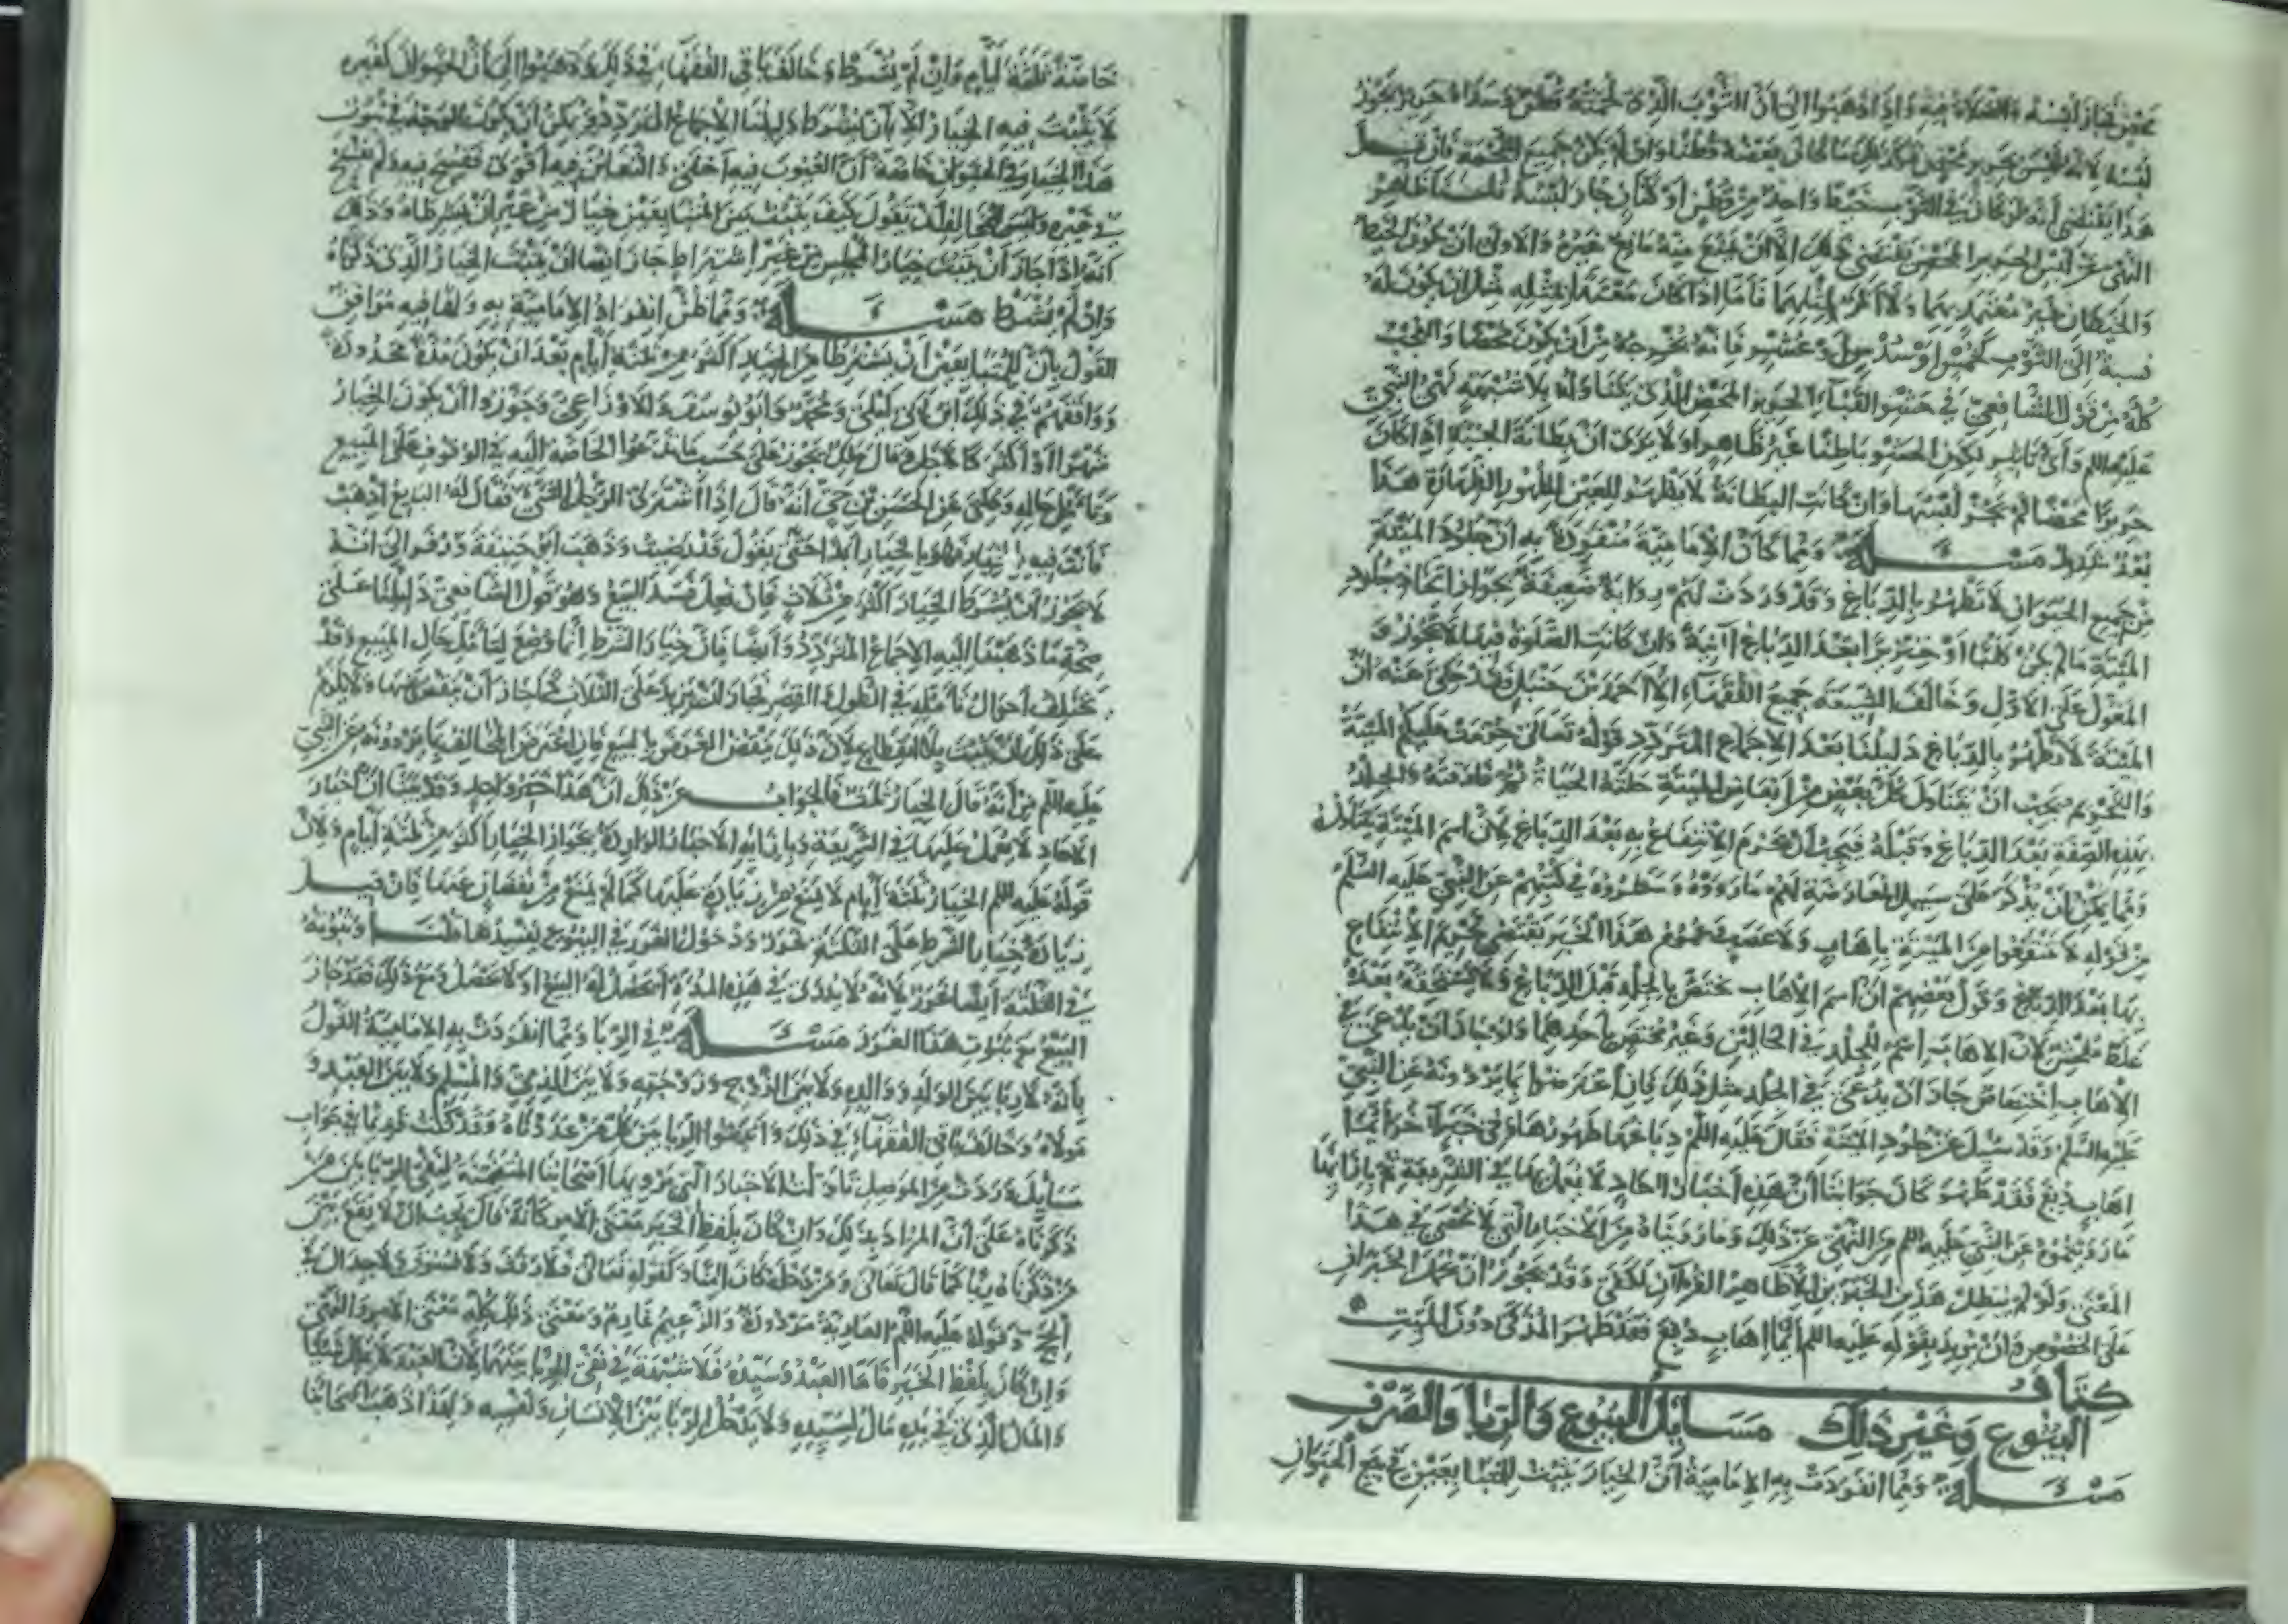 لبسه لأنه ليس بحرير محض
هذا يقتضي أنه لو كان في الثوب خيط واحد من قطن أو كتان جاز لبسه قلنا الظاهر
النهي عن لبس الحرير المحض يقتضي ذلك إلا أن يمنع منه مانع غيره والأولى أن يكون الخيط
والخيطان غير معتد بهما ولا أثر لمثلهما فأما إذا كان معتدا بمثله مثل أن يكون له
نسبة إلى الثوب كخمس أو سدس أو عشر فإنه يخرجه من أن يكون محضا والعجب
كله من قول الشافعي في حشو القباء الحرير المحض الذي يتناوله بلا شبهة نهي النبي
عليه السلم وأي تأثير لكون الحشو باطنا غير ظاهر أولا يرى أن بطانة الجبة إذا كان
حريرا محضا لم يجز لبسها وإن كانت البطانة لا يظهر للعين لظهور الظهارة هذا
بعد شديد مسئلة ومما كان الإمامية منفردة به أن جلود الميتة
من جميع الحيوان لا تطهر بالدباغ وقد وردت لهم رواية ضعيفة بجواز اتخاذ جلود
الميتة ما لم يكن كلبا أو خنزيرا بعد الدباغ آنية وإن كانت الصلوة فيها لا تجوز و
المعول على الأول وخالف الشيعة جميع الفقهاء إلا أحمد بن حنبل فقد حكي عنه أن
الميتة لا تطهر بالدباغ دليلنا بعد الإجماع المتردد قوله تعالى حرمت عليكم الميتة
والتحريم يجب أن يتناول كل بعض من أبعاض الميتة حلته الحياة ثم فارقته والجلد
بهذه الصفة بعد الدباغ وقبله فيجب أن يحرم الانتفاع به بعد الدباغ لأن اسم الميتة يتناوله
ومما يمكن أن يذكر على سبيل المعارضة لهم ما رووه وسطروه في كتبهم عن النبي عليه السلم
من قوله لا تنتفعوا من الميتة بإهاب ولا عصب فعموم هذا الخبر يقتضي تحريم الانتفاع
بها بعد الدباغ وقول بعضهم أن اسم الإهاب يختص بالجلد قبل الدباغ ولا يستحقه بعده
غلط فاحش لأن الإهاب اسم للجلد في الحالتين وغير مختص بأحدهما ولو جاز أن يدعى في
الإهاب اختصاص جاز أن يدعى في الجلد مثل ذلك فإن اعترضوا بما يروونه عن النبي
عليه السلم وقد سئل عن جلود الميتة فقال عليه السلم دباغها طهورها وفي خبر آخر أيما
إهاب دبغ فقد طهر كان جوابنا أن هذه أخبار آحاد لا يعمل بها في الشريعة ثم بإزائها
ما رويتموه عن النبي عليه السلم من النهي عن ذلك وما رويناه من الأخبار التي لا تحصى في هذا
المعنى ولو لم يبطل هذين الخبرين إلا ظاهر القرآن لكفى وقد يجوز أن نحمل الخبران
على الخصوص وأن يريد بقوله عليه السلم أيما إهاب دبغ فقد طهر المذكى دون الميت
كتاب
البيوع وغير ذلك مسايل البيوع والربا والصرف
مسئلة ومما انفردت به الإمامية أن الخيار يثبت للمتبايعين في بيع الحيوان
خاصة ثلثة أيام وإن لم يشترط وخالف باقي الفقهاء في ذلك وذهبوا إلى أن الحيوان كغيره
لا يثبت فيه الخيار إلا بأن يشترط دليلنا الإجماع المتردد ويمكن أن يكون الوجه في ثبوت
هذا الخيار في الحيوان خاصة أن العيوب فيه أخفى والتغابن فيه أقوى ففسح فيه ولم يفسح
في غيره وليس للمخالف أن يقول كيف يثبت بين المتبايعين خيار من غير أن يشترطاه وذلك
أنه إذا جاز أن يثبت خيار المجلس من غير اشتراط جاز أيضا أن يثبت الخيار الذي ذكرناه
وإن لم يشترط مسئلة ومما ظن انفراد الإمامية به ولها فيه موافق
القول بأن للمتبايعين أن يشترطا من الخيار أكثر من ثلثة أيام بعد أن يكون مدة محدودة
ووافقهم في ذلك ابن أبي ليلى ومحمد وأبو يوسف والأوزاعي وجوزوا أن يكون الخيار
شهرا أو أكثر كالأجل وقال مالك يجوز على حسب ما تدعوا الحاجة إليه في الوقوف على المبيع
وتأمل حاله وحكي عن الحسن بن حي أنه قال إذا اشترى الرجل الشيء فقال له البايع اذهب
فأنت فيه بالخيار فهو بالخيار أبدا حتى يقول قد رضيت وذهب أبو حنيفة وزفر إلى أنه
لا يجوز أن يشترط الخيار أكثر من ثلاث فإن فعل فسد البيع وهو قول الشافعي دليلنا على
صحة ما ذهبنا إليه الإجماع المتردد وأيضا فإن خيار الشرط إنما وضع لتأمل حال المبيع وقد
يختلف أحوال تأمله في الطول والقصر فجاز أن يزيد على الثلاث كما جاز أن ينقص عنها ولا يلزم
على ذلك أن يثبت بلا انقطاع لأن ذلك ينقض الغرض بالبيع فإن اعترض المخالف بما يروونه عن النبي
عليه السلم من أنه قال الخيار ثلث فالجواب عن ذلك أن هذا خبر واحد وقد بينا أن أخبار
الآحاد لا يعمل عليها في الشريعة وبإزائه الأخبار الواردة بجواز الخيار أكثر من ثلثة أيام ولأن
قوله عليه السلم الخيار ثلثة أيام لا يمنع من زيادة عليها كما لم يمنع من نقصان عنها فإن قيل
زيادة خيار الشرط على الثلثة غرر ودخول الغرر في البيوع يفسدها قلنا وثبوته
في الثلثة أيضا غرر لأنه لا يدرى في هذه المدة أيحصل له البيع أو لا يحصل ومع ذلك فقد جاز
البيع مع ثبوت هذا الغرر مسئلة في الربا ومما انفردت به الإمامية القول
بأنه لا ربا بين الولد ووالده ولا بين الزوج وزوجته ولا بين الذمي والمسلم ولا بين العبد و
مولاه وخالف باقي الفقهاء في ذلك وأثبتوا الربا بين كل من عددناه وقد كنت قديما في جواب
مسايل وردت من الموصل تأولت الأخبار التي يرويها أصحابنا المتضمنة لنفي الربا بين من
ذكرناه على أن المراد بذلك وإن كان بلفظ الخبر معنى الأمر كأنه قال يجب أن لا يقع بين
من ذكرناه ربا كما قال تعالى ومن دخله كان آمنا وكقوله تعالى فلا رفث ولا فسوق ولا جدال في
الحج وقوله عليه السلم العارية مردودة والزعيم غارم ومعنى ذلك كله معنى الأمر والنهي
وإن كان بلفظ الخبر فأما العبد وسيده فلا شبهة في نفي الربا بينهما لأن العبد لا يملك شيئا
والمال الذي في يده مال لسيده ولا يدخل الربا بين الإنسان ونفسه ولهذا ذهب أصحابنا